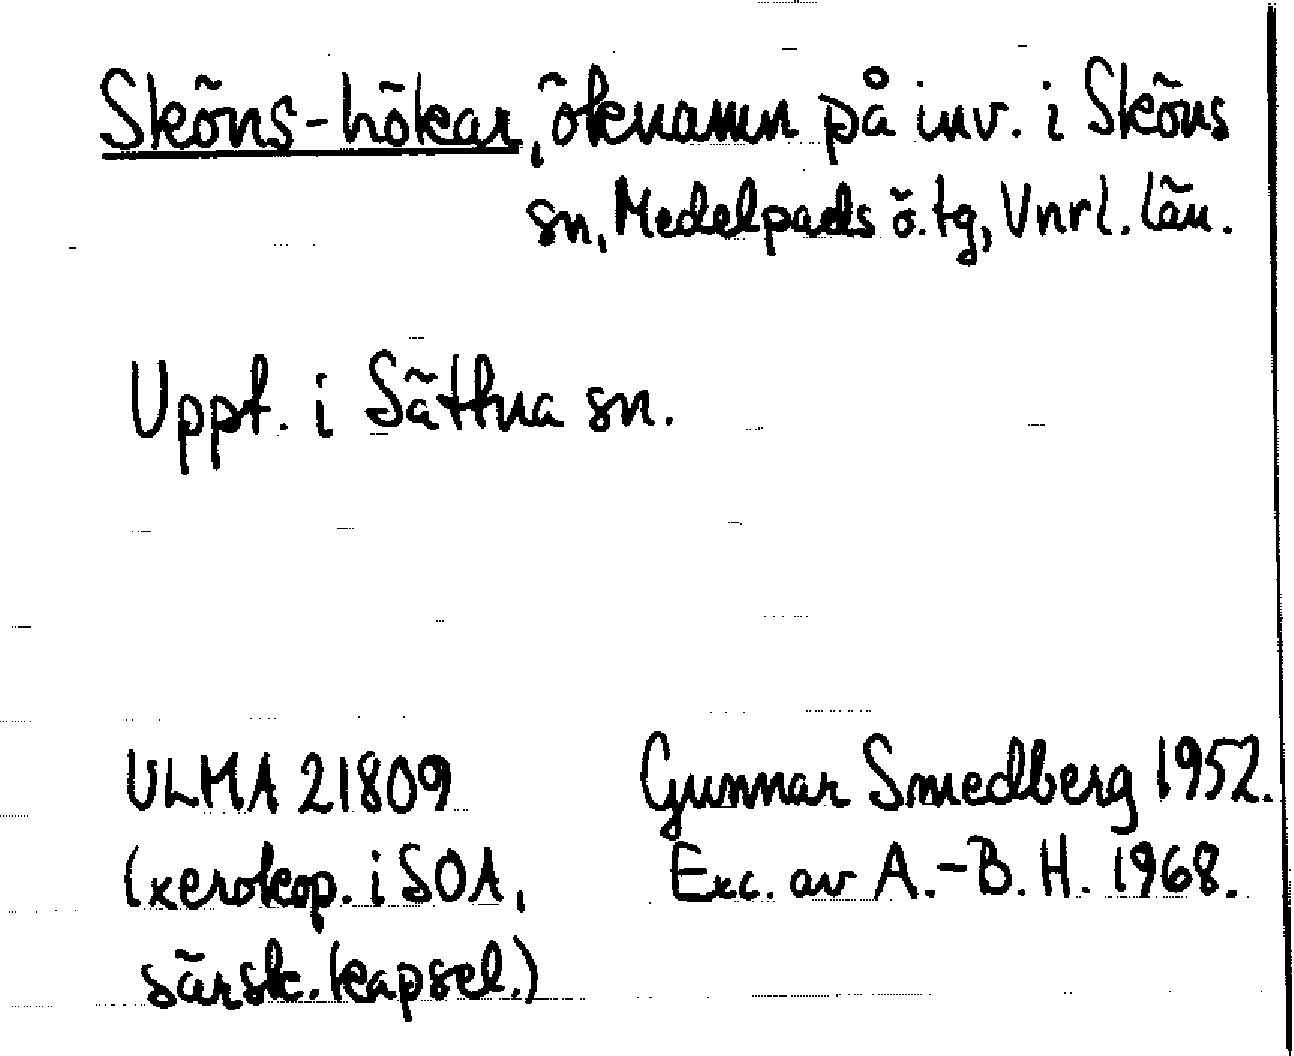 Sköns-hökar, öknamn på inv. i Sköns
sn, Medelpads ö. tg, Vnrl. län.
Uppt. i Sättna sn.
ULMA 21809
(xerokop. i SOA,
särsk. kapsel.)
Gunnar Smedberg 1952.
Exc. av A.-B. H. 1968.